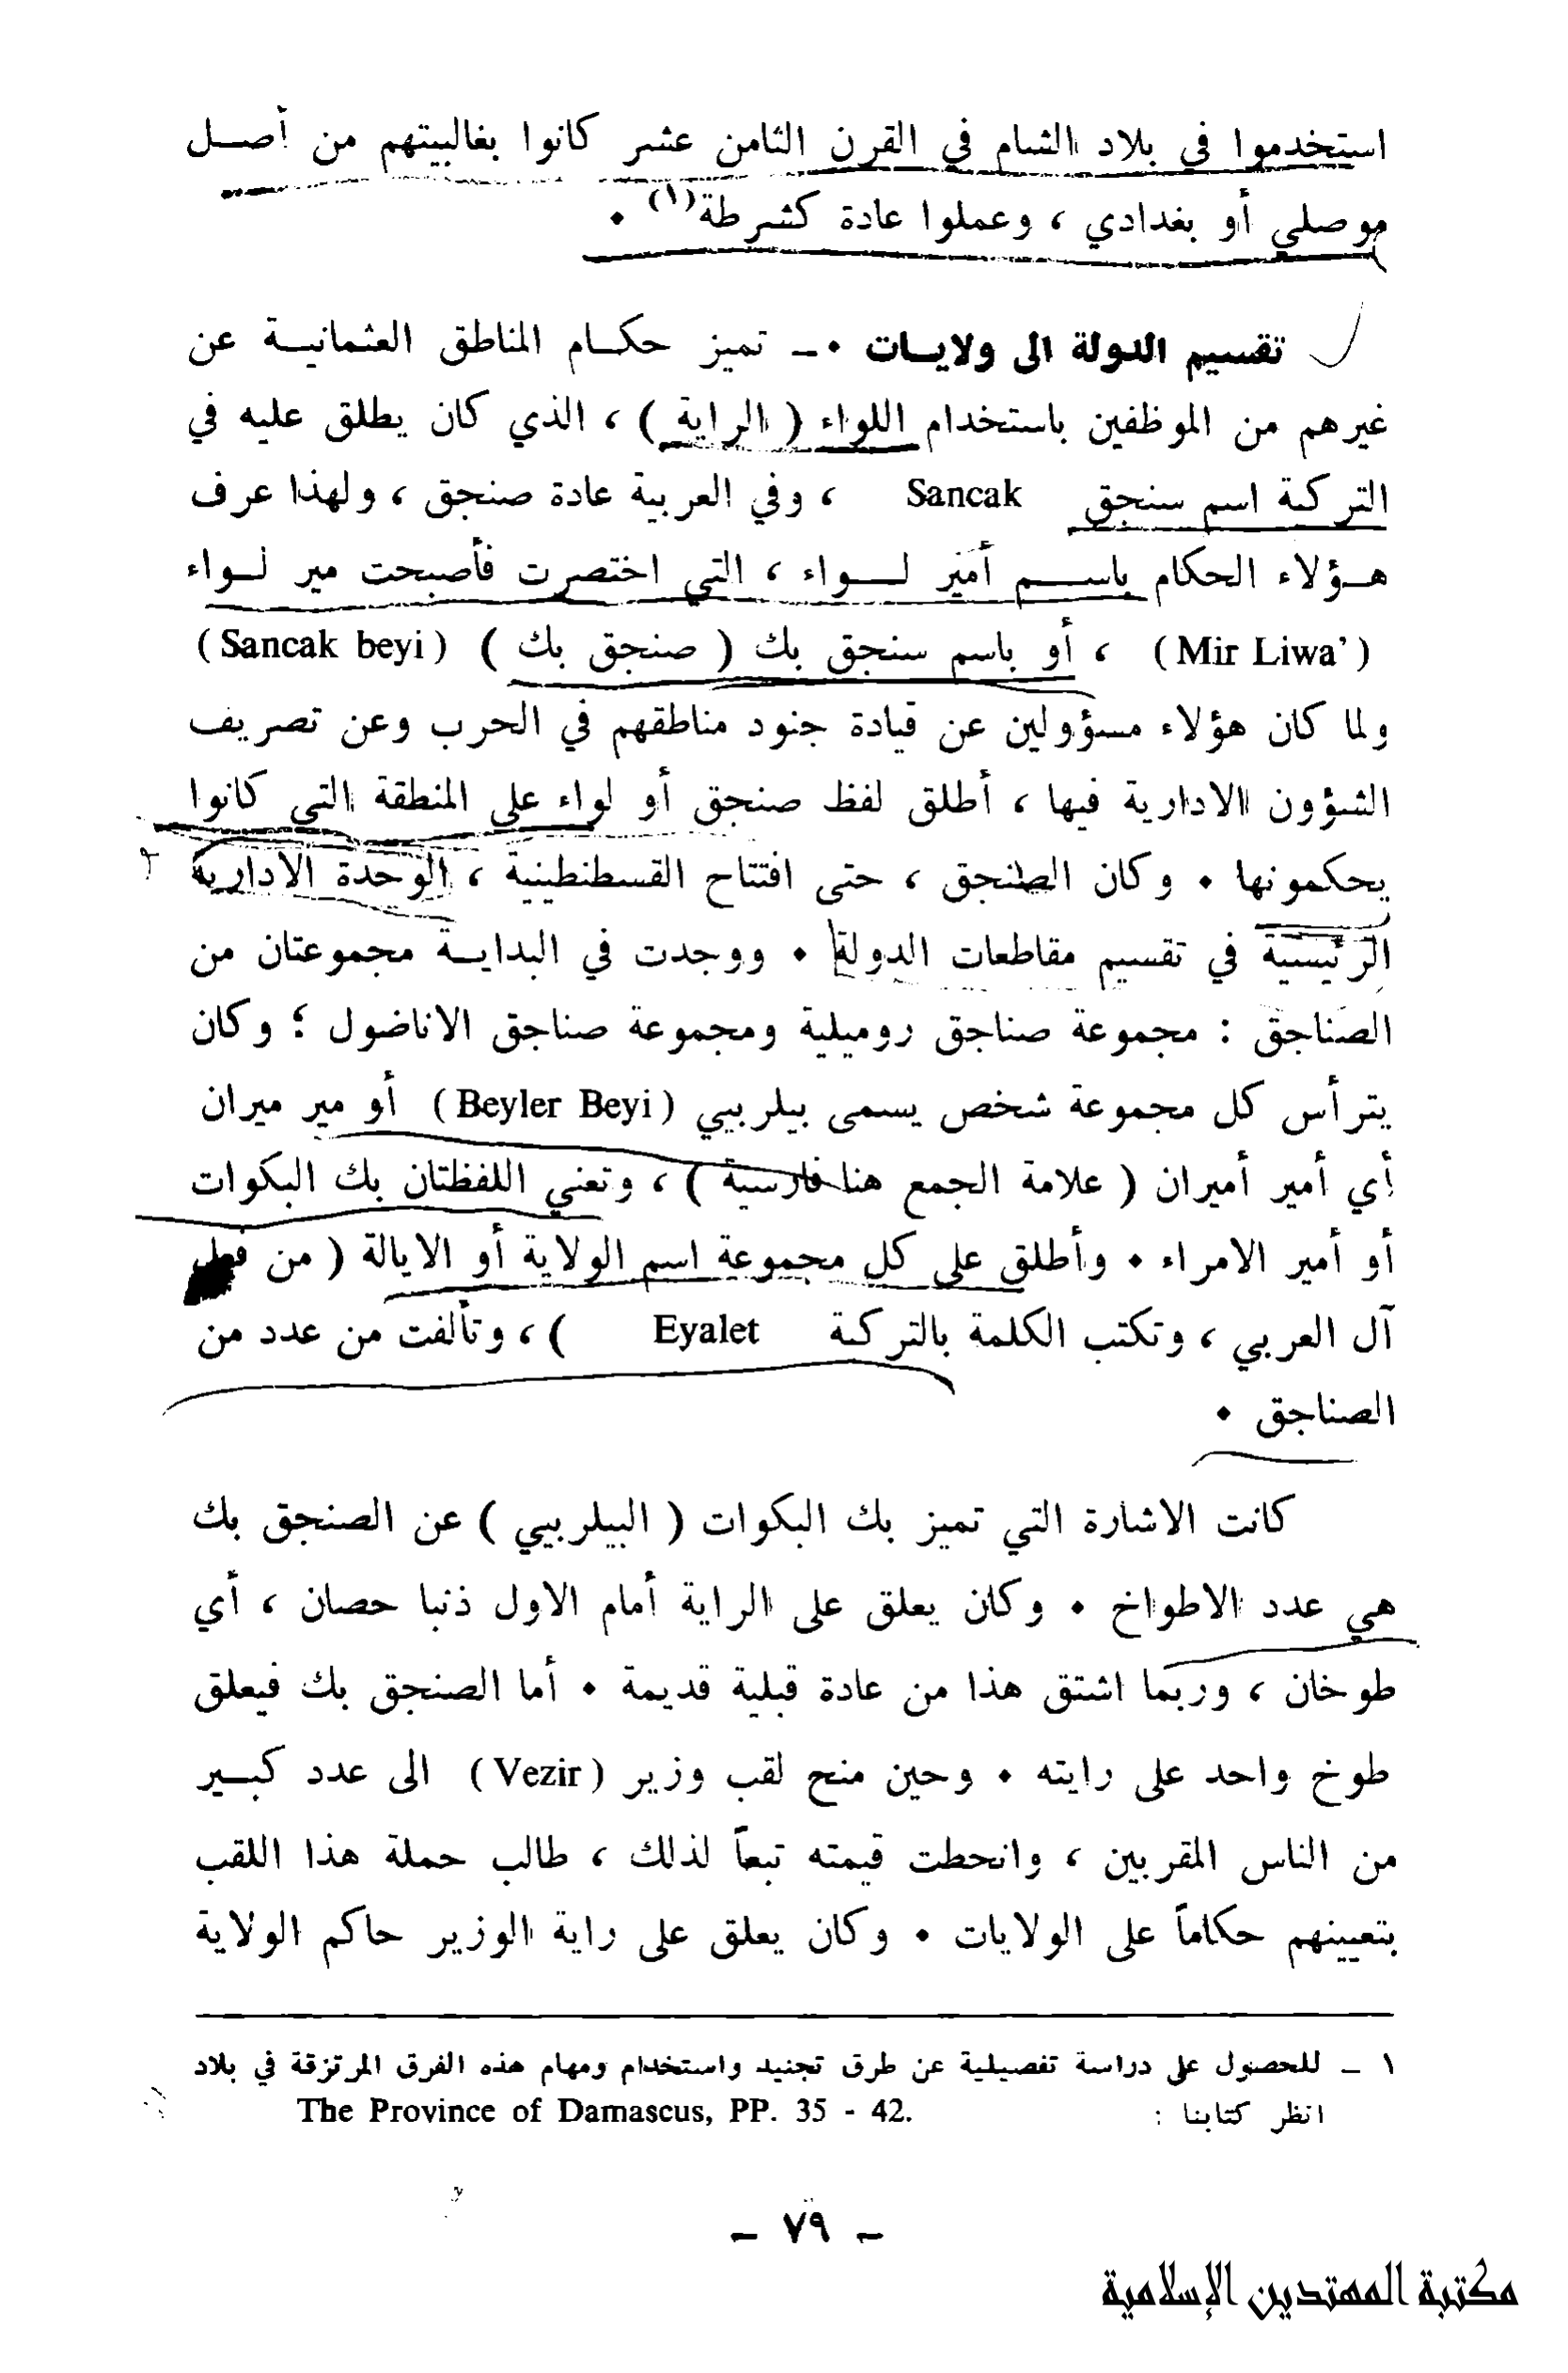 استخدموا في بلاد الشام في القرن الثامن عشر كانوا بغالبيتهم من أصل
موصلي أو بغدادي ، وعملوا عادة كشرطة(١) ٠
تقسيم الدولة الى ولايات ٠ـ تميز حكام المناطق العثمانية عن
غيرهم من الموظفين باستخدام اللواء ( الراية ) ، الذي كان يطلق عليه في
التركية اسم سنجق Sancak ، وفي العربية عادة صنجق ، ولهذا عرف
هؤلاء الحكام باسم أمير لواء ، التي اختصرت فأصبحت مير لواء
(Mir Liwa’) ، أو باسم سنجق بك ( صنجق بك ) (Sancak beyi)
ولما كان هؤلاء مسؤولين عن قيادة جنود مناطقهم في الحرب وعن تصريف
الشؤون الادارية فيها ، أطلق لفظ صنجق أو لواء على المنطقة التي كانوا
يحكمونها ٠ وكان الصنجق ، حتى افتتاح القسطنطينية ، الوحدة الادارية
الرئيسية في تقسيم مقاطعات الدولة ٠ ووجدت في البداية مجموعتان من
الصناجق : مجموعة صناجق روميلية ومجموعة صناجق الاناضول ؛ وكان
يترأس كل مجموعة شخص يسمى بيلربيي (Beyler Beyi) أو مير ميران
أي أمير أميران ( علامة الجمع هنا فارسية ) ، وتعني اللفظتان بك البكوات
أو أمير الامراء ٠ وأطلق على كل مجموعة اسم الولاية أو الايالة ( من فعل
آل العربي ، وتكتب الكلمة بالتركية Eyalet ) ، وتألفت من عدد من
الصناجق ٠
كانت الاشارة التي تميز بك البكوات ( البيلربيي ) عن الصنجق بك
هي عدد الاطواخ ٠ وكان يعلق على الراية أمام الاول ذنبا حصان ، أي
طوخان ، وربما اشتق هذا من عادة قبلية قديمة ٠ أما الصنجق بك فيعلق
طوخ واحد على رايته ٠ وحين منح لقب وزير (Vezir) الى عدد كبير
من الناس المقربين ، وانحطت قيمته تبعاً لذلك ، طالب حملة هذا اللقب
بتعيينهم حكاماً على الولايات ٠ وكان يعلق على راية الوزير حاكم الولاية
١ ـ للحصول على دراسة تفصيلية عن طرق تجنيد واستخدام ومهام هذه الفرق المرتزقة في بلاد
انظر كتابنا : The Province of Damascus, PP. 35 - 42.
ـ ٧٩ ـ
مكتبة المهتدين الإسلامية